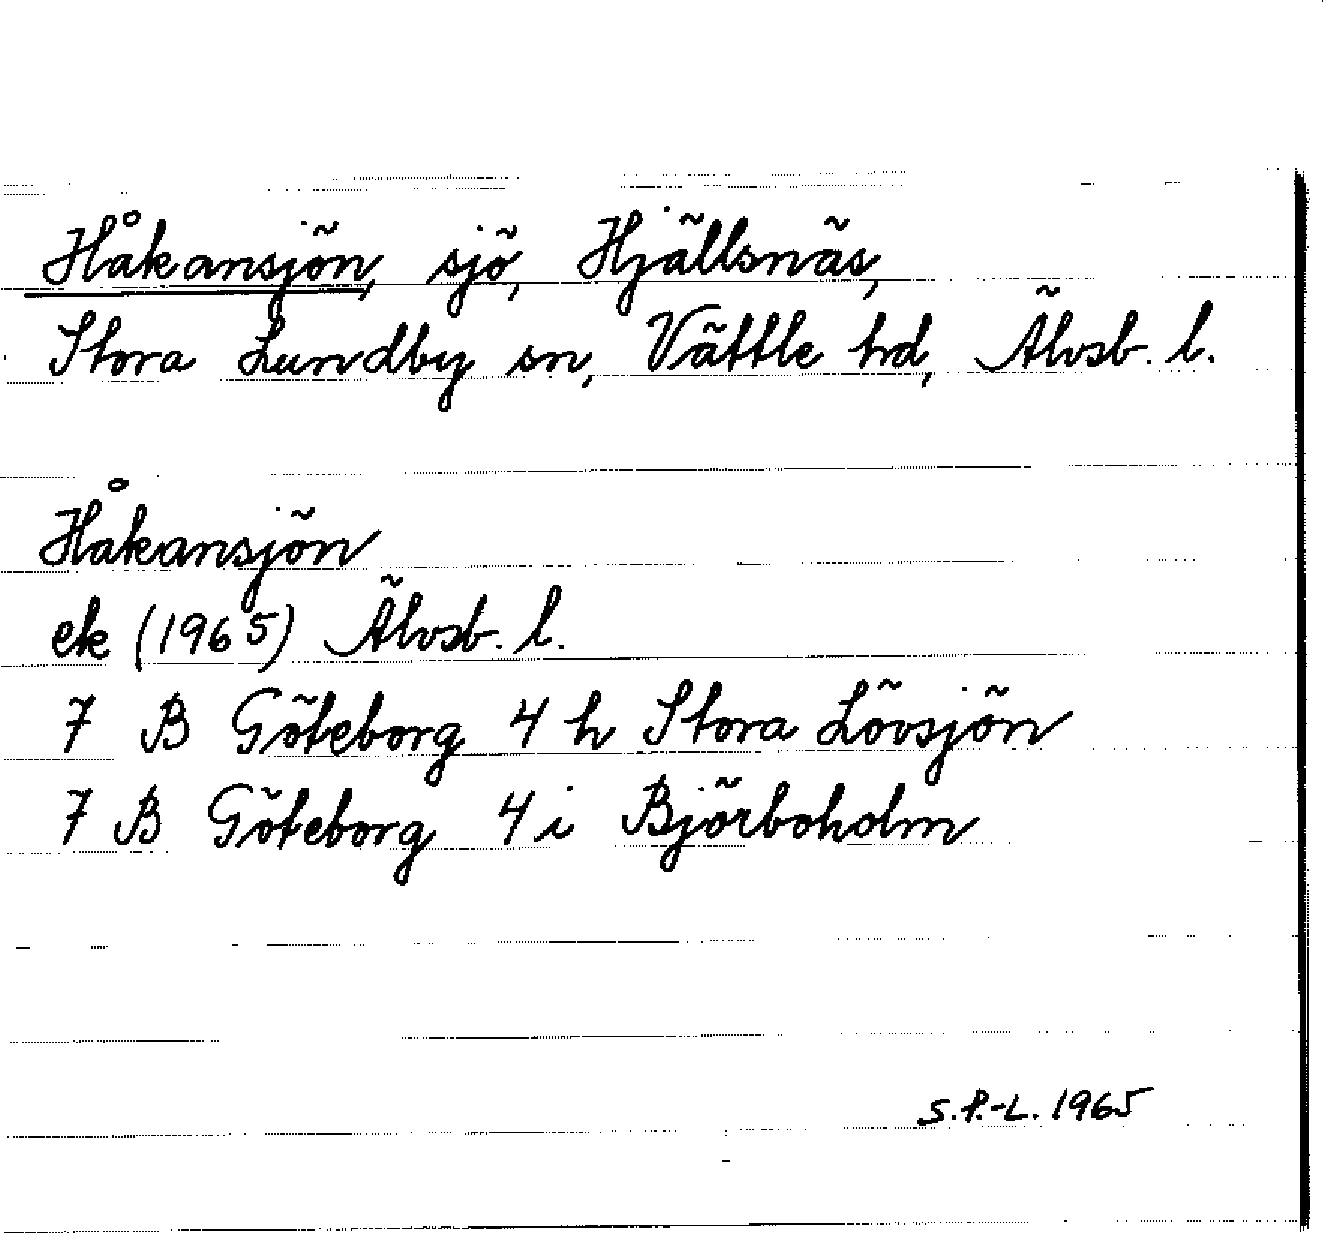 Håkansjön, sjö, Hjällsnäs,
Stora Lundby sn, Vättle hd, Älvsb. l.
Håkansjön
ek (1965) Älvsb. l.
7 B Göteborg 4 h Stora Lövsjön
7 B Göteborg 4 i Björboholm
S.P.-L. 1965